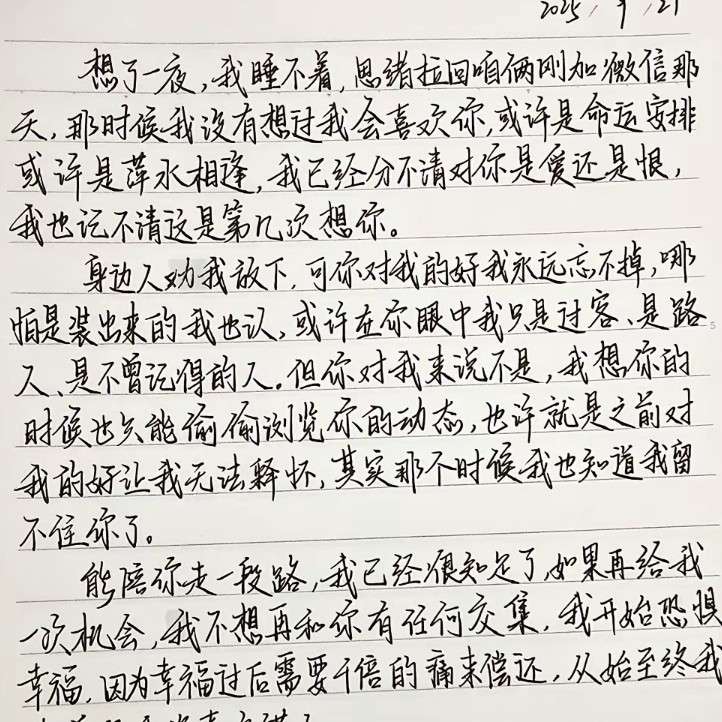 2025/9/21
想了一夜，我睡不着，思绪拉回咱俩刚加微信那
天，那时候我没有想过我会喜欢你，或许是命运安排
或许是萍水相逢，我已经分不清对你是爱还是恨，
我也记不清这是第几次想你。
身边人劝我放下，可你对我的好我永远忘不掉，哪
怕是装出来的我也认，或许在你眼中我只是过客、是路
人、是不曾记得的人。但你对我来说不是，我想你的
时候也只能偷偷浏览你的动态，也许就是之前对
我的好让我无法释怀，其实那个时候我也知道我留
不住你了。
能陪你走一段路，我已经很知足了，如果再给我
一次机会，我不想再和你有任何交集，我开始恐惧
幸福，因为幸福过后需要千倍的痛来偿还，从始至终我